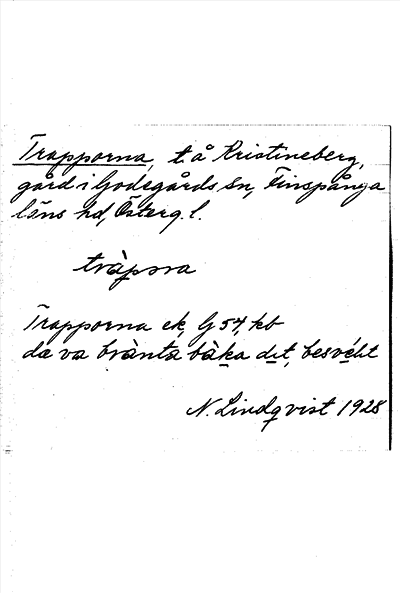 Trapporna, t. å Kristineberg,
gård i Godegårds sn, Finspånga
läns hd, Österg. l.
tràpona
Trapporna ek, G 54, kb
da va brànta bàka dit, besvéḷit
N. Lindqvist 1928